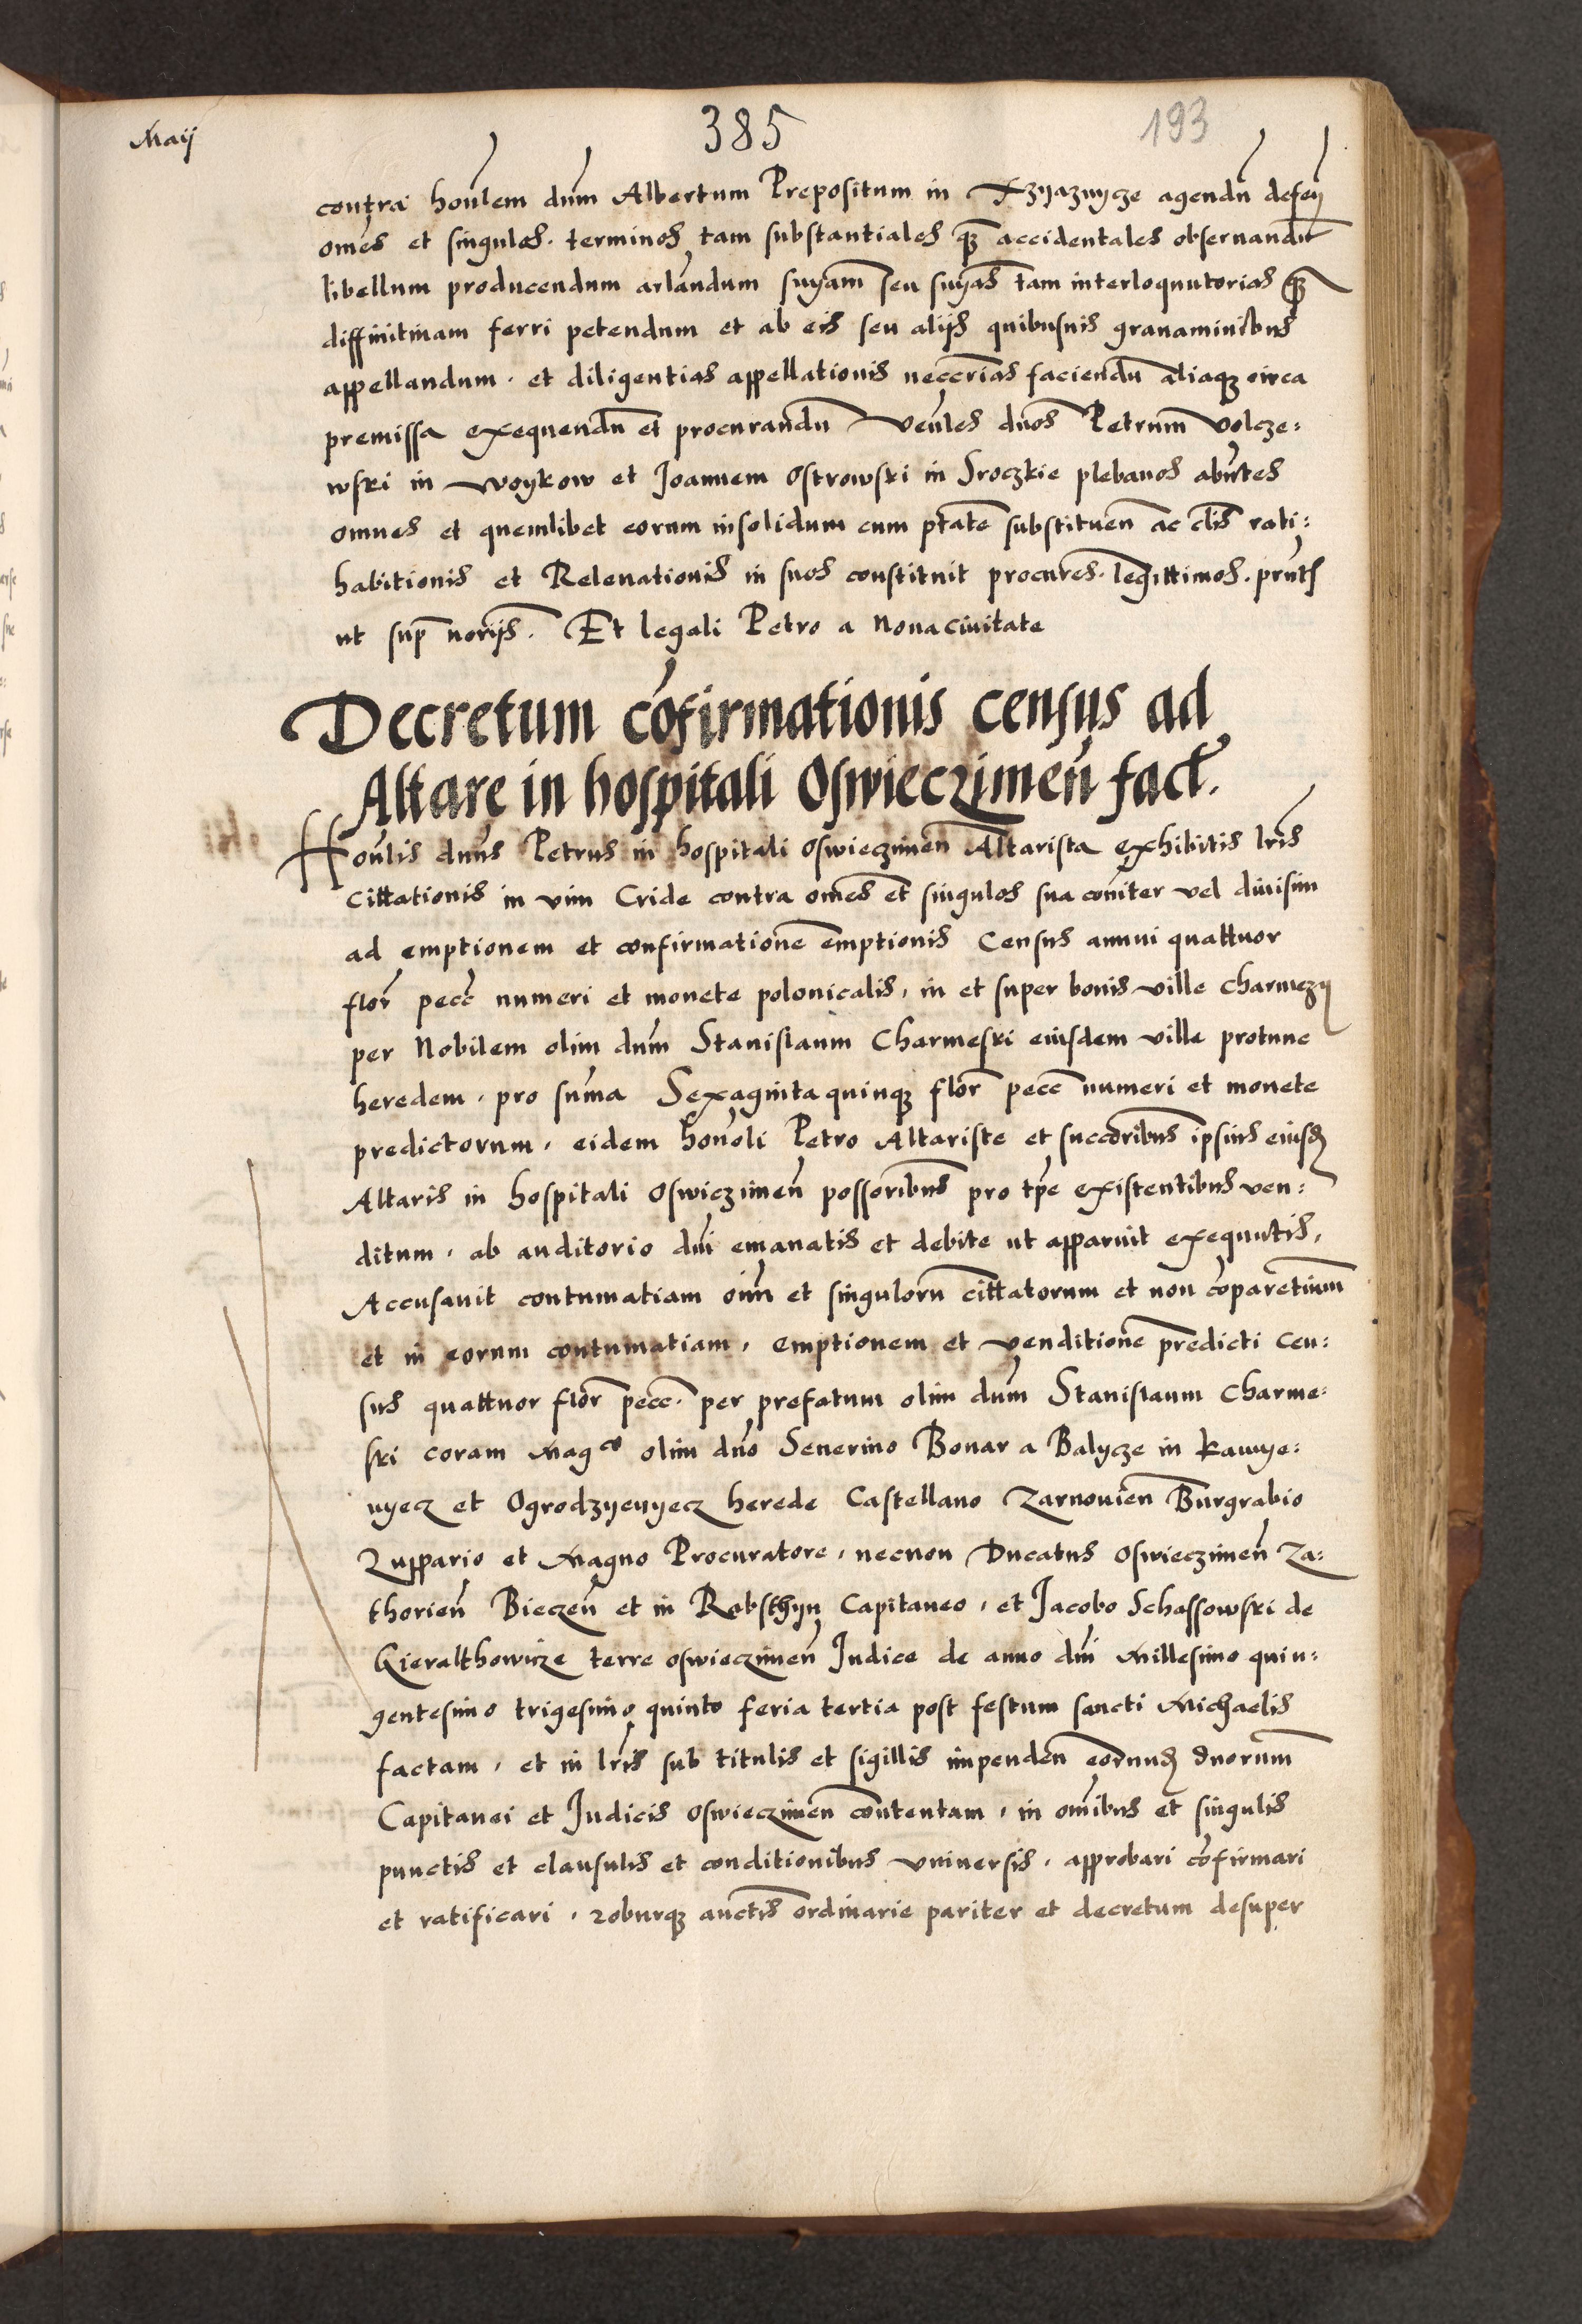 Maij
385
193
contra honlem dnm Albertum Prepositum in Xzyaznycze agendū defeñ
om̄es et singulos. terminos tam substantiales q̄ȝ accidentales obseruandū
libellum producendum arlāndum snyam̄ seu snyas̄ tam interloquutorias q̄ȝ
diffinitiuam ferri petendum et ab eis seu alijs quibusuis grauaminibus
appellandum. et diligentias appellationis necc̄rias faciendū aliaqȝ circa
premissa exequendū et procurandū Venles dnos Petrum Volcze:
wski in Woykow et Joannem Ostrowski in Sroczkie plebanos abn̄tes
omnes et quemlibet eorum insolidum cum ptātē substituen̄ ac clīs rati:
habitionis et Releuationis in suos constituit procur̄es. legittimos. pn̄ts
ut sup̄ norijs. Et legali Petro a Nouaciuitate
Decretum cōfirmationis census ad
Altare in hospitali Oswieczimen̄ fact.
Honlis dnns Petrus in hospitali Oswieczimen̄ Altarista exhibitis lr̄is
Cittationis in vim Cride contra om̄es et singulos sua com̄iter vel diuisim
ad emptionem et confirmationē emptionis Census annui quattuor
flor̄ pecc̄ numeri et monete polonicalis, in et super bonis ville Charmezy
per Nobilem olim dnm Stanislaum Charmeski eiusdem ville protunc
heredem, pro sum̄a Sexaginta quinqȝ flor̄ pecc̄ numeri et monete
predictorum, eidem honoli Petro Altariste et succōribus ipsius eiusd̄
Altaris in hospitali Oswieczimen̄ possōribus pro tp̄e existentibus ven:
ditum, ab auditorio dni emanatis et debite ut apparuit exequutis,
Accusauit contumatiam oīm et singulorū cittatorum et non cōparentium
et in eorum contumatiam, emptionem et venditionē predicti Cen:
sus quattuor flor̄ pecc̄. per prefatum olim dnm Stanislaum Charme:
ski coram Magco olim dno Seuerino Bonar a Balycze in Kamye:
nyecz et Ogrodzyenyecz herede Castellano Zarnouien̄ Burgrabio
Zuppario et Magno Procuratore, necnon Ducatus Oswieczimen̄ Za:
thorien̄ Bieczen̄ et in Rabsthyn Capitaneo, et Jacobo Schassowski de
Gieralthowicze terre oswieczimen̄ Judice de anno dni Millesimo quin:
gentesimo trigesimo quinto feria tertia post festum sancti Michaelis
factam, et in lr̄is sub titulis et sigillis impenden̄ eorund̄ dnorum
Capitanei et Judicis Oswieczimen̄ contentam, in om̄ibus et singulis
punctis et clausulis et conditionibus vniuersis, approbari cōfirmari
et ratificari, roburqȝ auctīs ordinarie pariter et decretum desuper